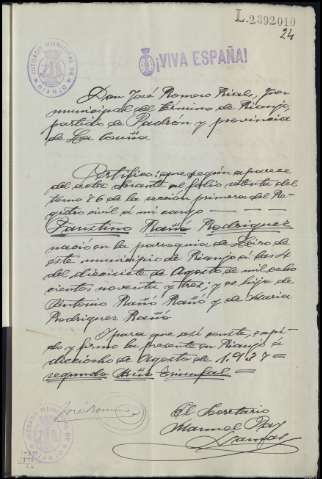 L.2392010
24
¡VIVA ESPAÑA!
Don José Romero Rial, Juez
municipal del término de Rianjo,
partido de Padrón y provincia
de La Coruña
Certifico: que según aparece
del acta obrante al folio del
tomo 26 de la sección primera del Re-
gistro civil a mi cargo
Faustino Raño Rodríguez
nació en la parroquia de Leiro de
este municipio de Rianjo a las
del diecisiete de Agosto de mil ocho
cientos noventa y tres; y es hijo de
Antonio Rañó Rañó y de María
Rodríguez Rañó
Y para que así conste, expi-
do y firmo la presente en Rianjo a
dieciocho de Agosto de 1937
segundo Año Triunfal
José Romero
El Secretario
Manuel